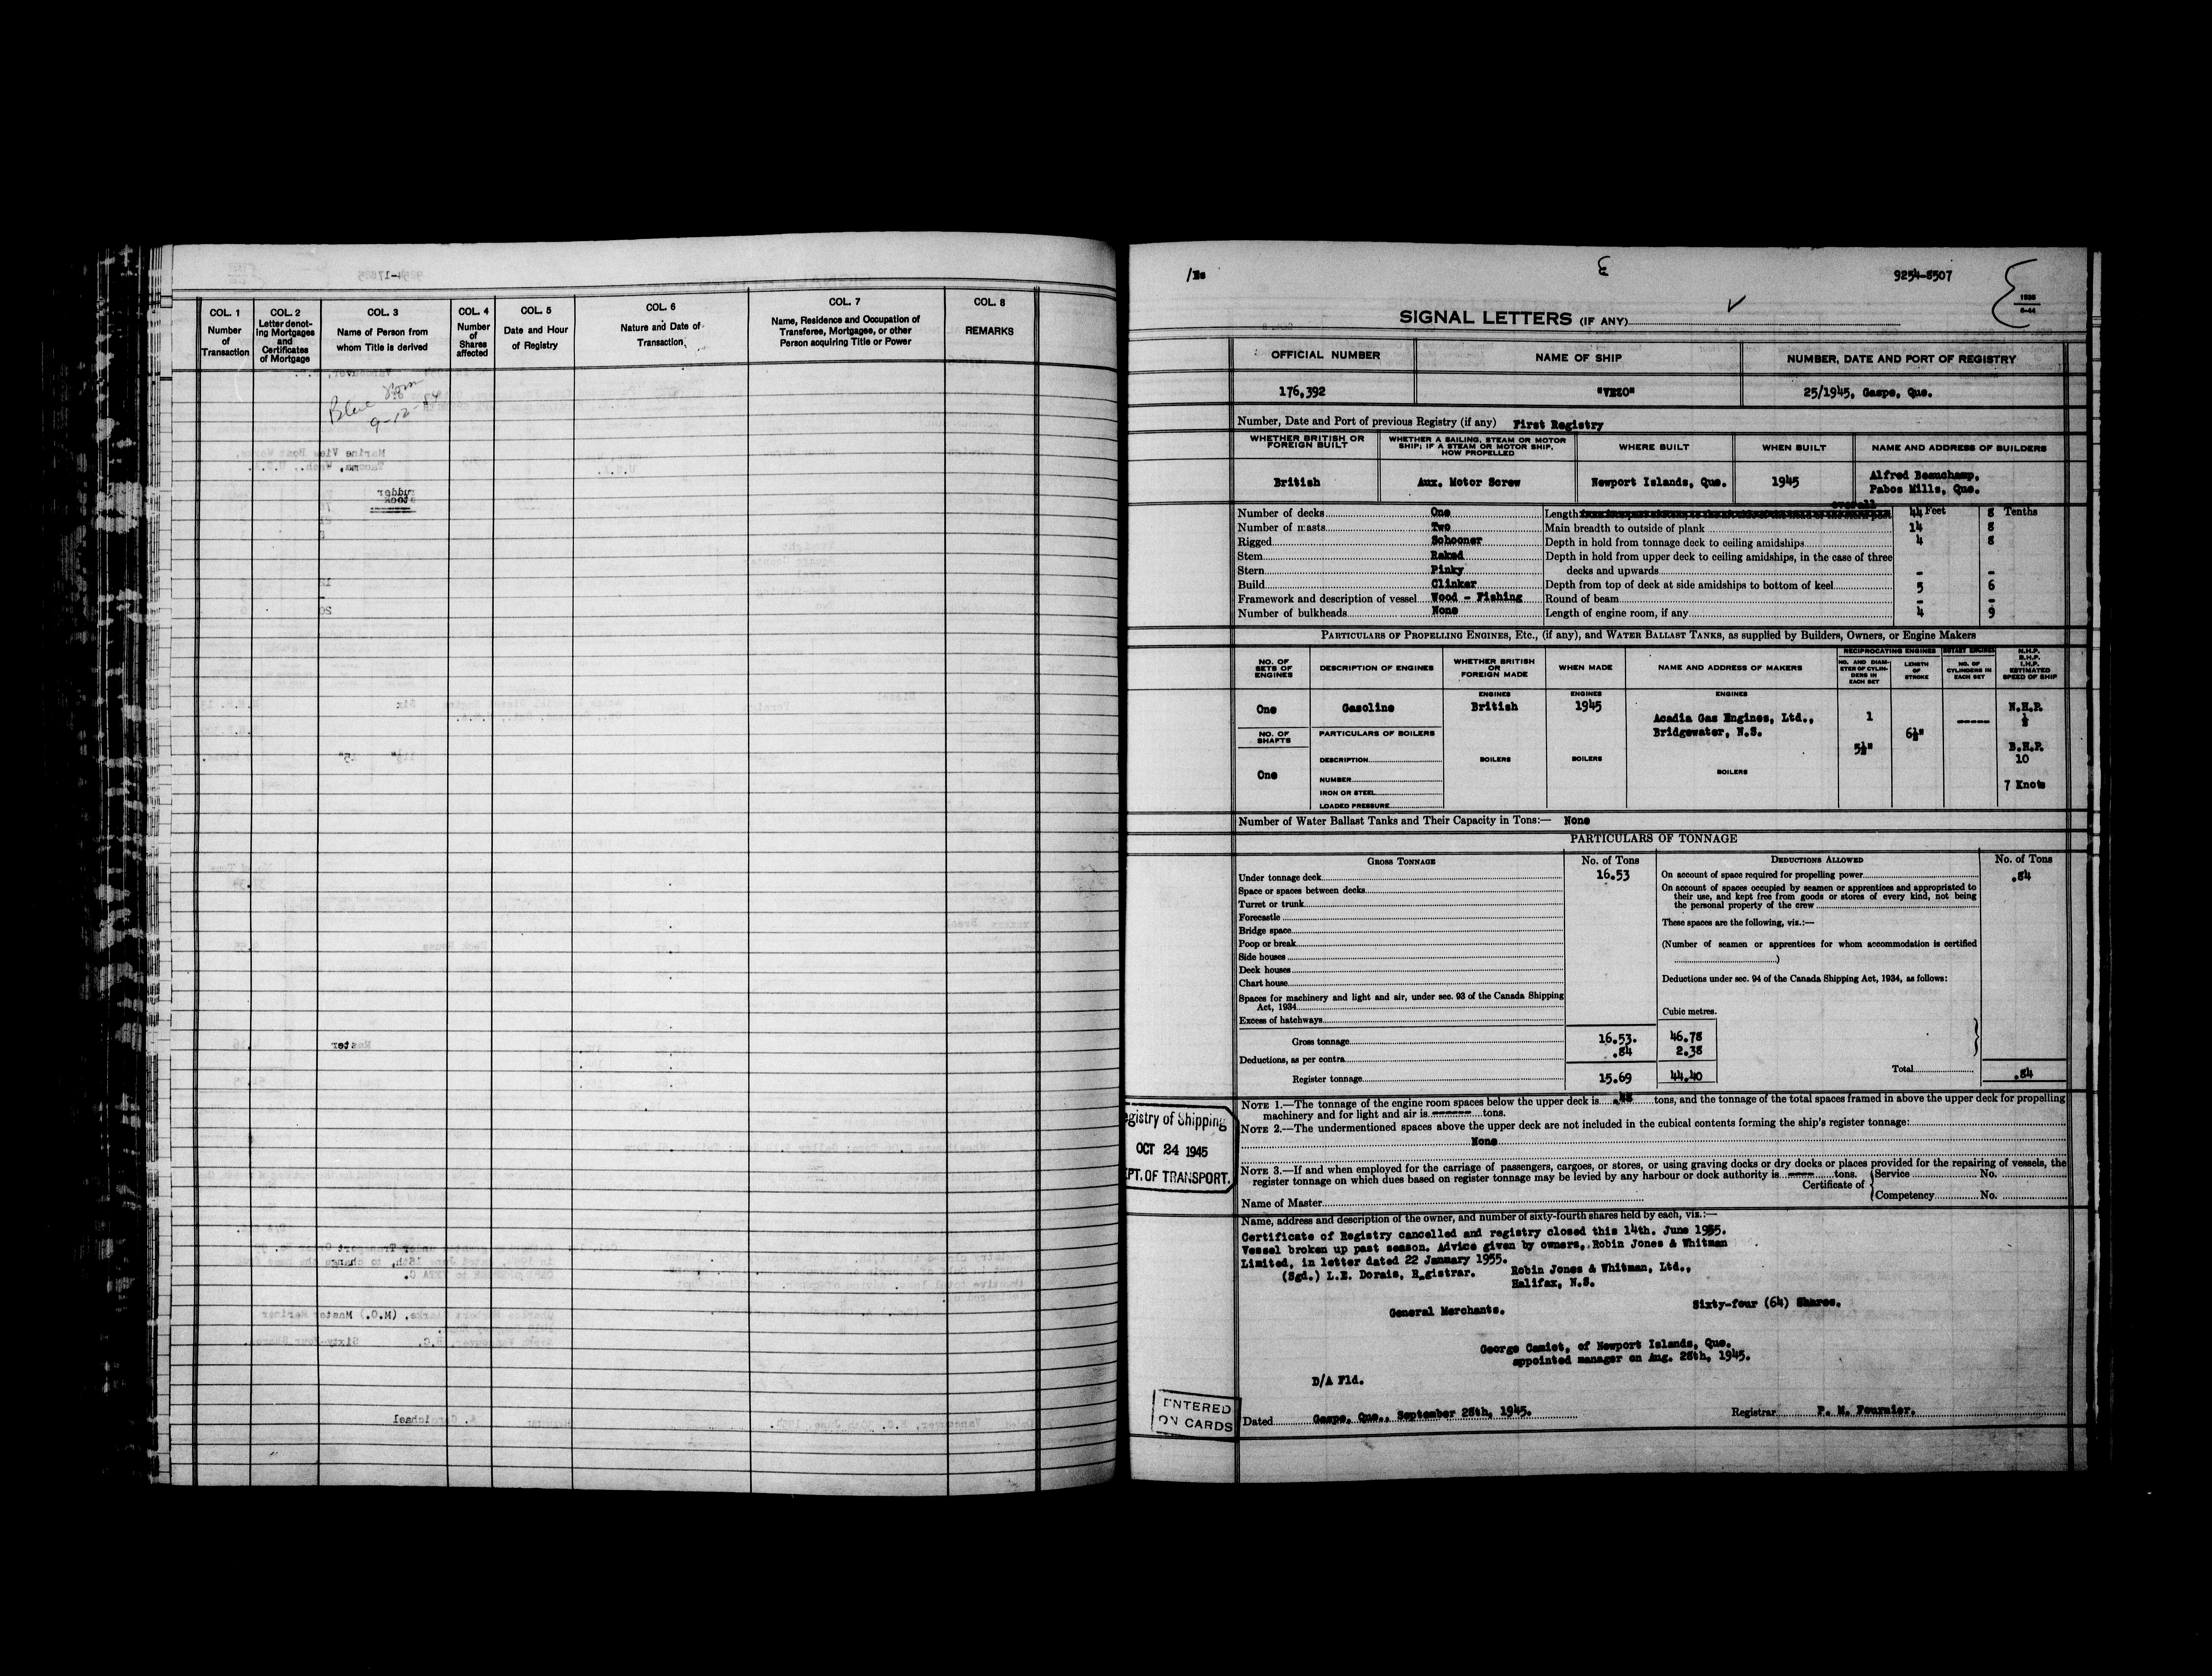 COL. 1
Number
of
Transaction
COL. 2
Letter denot-
ing Mortgages
and
Certificates
of Mortgage
COL. 3
Name of Person from
whom Title is derived
COL. 4
Number
of
Shares
affected
COL. 5
Date and Hour
of Registry
COL. 6
Nature and Date of
Transaction
COL. 7
Name, Residence and Occupation of
Transferee, Mortgagee, or other
Person acquiring Title or Power
COL. 8
REMARKS
Blue
9-12-54
9254-8507
SIGNAL LETTERS (IF ANY)
OFFICIAL NUMBER NAME OF SHIP NUMBER, DATE AND PORT OF REGISTRY
176,392 "VEZO" 25/1945, Gaspe, Que.
Number, Date and Port of previous Registry (if any) First Registry
WHETHER BRITISH OR
FOREIGN BUILT
WHETHER A SAILING, STEAM OR MOTOR
SHIP; IF A STEAM OR MOTOR SHIP,
HOW PROPELLED
WHERE BUILT WHEN BUILT NAME AND ADDRESS OF BUILDERS
British Aux. Motor Screw Newport Islands, Que. 1945 Alfred Beauchamp,
Pabos Mills, Que.
Number of decks One Length overall 44 Feet 8 Tenths
Number of masts Two Main breadth to outside of plank 14 8
Rigged Schooner Depth in hold from tonnage deck to ceiling amidships 4 8
Stem Raked Depth in hold from upper deck to ceiling amidships, in the case of three
Stern Pinky decks and upwards - -
Build Clinker Depth from top of deck at side amidships to bottom of keel 5 6
Framework and description of vessel Wood - Fishing Round of beam - -
Number of bulkheads None Length of engine room, if any 4 9
PARTICULARS OF PROPELLING ENGINES, ETC., (if any), and WATER BALLAST TANKS, as supplied by Builders, Owners, or Engine Makers
NO. OF
SETS OF
ENGINES
DESCRIPTION OF ENGINES
WHETHER BRITISH
OR
FOREIGN MADE
WHEN MADE
NAME AND ADDRESS OF MAKERS
RECIPROCATING ENGINES
NO. AND DIAM-
ETER OF CYLIN-
DERS IN
EACH SET
LENGTH
OF
STROKE
ROTARY ENGINES
NO. OF
CYLINDERS IN
EACH SET
N.H.P.
B.H.P.
I.H.P.
ESTIMATED
SPEED OF SHIP
ENGINES ENGINES ENGINES
One Gasoline British 1945 Acadia Gas Engines, Ltd.,
Bridgewater, N.S.
1
5½"
6½"
N.H.P.
B.H.P.
10
7 Knots
NO. OF
SHAFTS
One
PARTICULARS OF BOILERS
DESCRIPTION BOILERS BOILERS BOILERS
NUMBER
IRON OR STEEL
LOADED PRESSURE
Number of Water Ballast Tanks and Their Capacity in Tons:— None
PARTICULARS OF TONNAGE
GROSS TONNAGE No. of Tons DEDUCTIONS ALLOWED No. of Tons
Under tonnage deck 16.53
Space or spaces between decks
Turret or trunk
Forecastle
Bridge space
Poop or break
Side houses
Deck houses
Chart house
Spaces for machinery and light and air, under sec. 93 of the Canada Shipping
Act, 1934
Excess of hatchways
Gross tonnage 16.53. 46.78
Deductions, as per contra .84 2.38
Register tonnage 15.69 44.40
On account of space required for propelling power .84
On account of spaces occupied by seamen or apprentices and appropriated to
their use, and kept free from goods or stores of every kind, not being
the personal property of the crew
These spaces are the following, viz.:—
(Number of seamen or apprentices for whom accommodation is certified
)
Deductions under sec. 94 of the Canada Shipping Act, 1934, as follows:
Cubic metres.
Total .84
NOTE 1.—The tonnage of the engine room spaces below the upper deck is tons, and the tonnage of the total spaces framed in above the upper deck for propelling
machinery and for light and air is tons.
NOTE 2.—The undermentioned spaces above the upper deck are not included in the cubical contents forming the ship's register tonnage:
None
NOTE 3.—If and when employed for the carriage of passengers, cargoes, or stores, or using graving docks or dry docks or places provided for the repairing of vessels, the
register tonnage on which dues based on register tonnage may be levied by any harbour or dock authority is tons.
Certificate of { Service No.
Competency No.
Name of Master
egistry of Shipping
OCT 24 1945
EPT. OF TRANSPORT.
Name, address and description of the owner, and number of sixty-fourth shares held by each, viz.:—
Certificate of Registry cancelled and registry closed this 14th. June 1955.
Vessel broken up past season. Advice given by owners, Robin Jones & Whitman
Limited, in letter dated 22 January 1955.
(Sgd.) L.E. Dorais, Registrar.
Robin Jones & Whitman, Ltd.,
Halifax, N.S.
General Merchants. Sixty-four (64) Shares.
George Camiot, of Newport Islands, Que.
appointed manager on Aug. 28th, 1945.
D/A Fld.
ENTERED
ON CARDS
Dated Gaspe, Que., September 28th, 1945. Registrar P. M. Fournier.